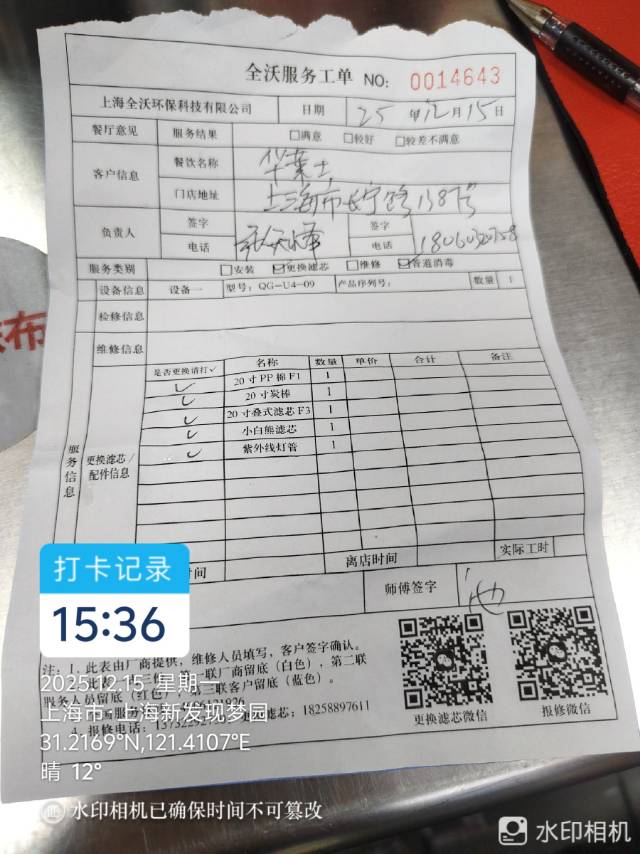 全沃服务工单 NO: 0014643
上海全沃环保科技有限公司 日期 25 年 12 月 15 日
餐厅意见 服务结果 □满意 □较好 □较差不满意
客户信息 餐饮名称 华莱士
门店地址 上海市长宁路1387号
负责人 签字 签字
电话 电话
服务类别 □安装 ☑更换滤芯 □维修 ☑管道消毒
设备信息 设备一 型号: QG-U4-09 产品序列号: 数量 1
检修信息
维修信息
服务信息 更换滤芯/配件信息
是否更换请打✓ 名称 数量 单价 合计 备注
✓ 20寸PP棉F1 1
✓ 20寸炭棒 1
✓ 20寸叠式滤芯F3 1
✓ 小白熊滤芯 1
✓ 紫外线灯管 1
时间 离店时间 实际工时
师傅签字
打卡记录
15:36
注: 1、此表由厂商提供, 维修人员填写, 客户签字确认。
联厂商留底（白色）, 第二联
服务人员留底（红色） 三联客户留底（蓝色）。
滤芯: 18258897611
报修电话:
更换滤芯微信 报修微信
2025.12.15 星期一
上海市·上海新发现梦园
31.2169°N,121.4107°E
晴 12°
水印相机已确保时间不可篡改
水印相机
布